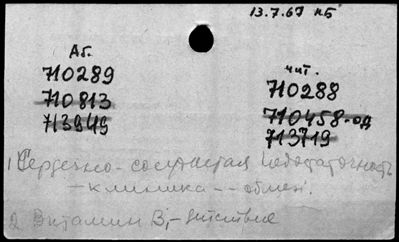 13.7.67 кб
Аб.
710289
710813
713949
чит.
710288
710458-од
713719
1 Сердечно-сосудистая недостаточность
-клиника -- обмен.
2 Витамин В,- действие